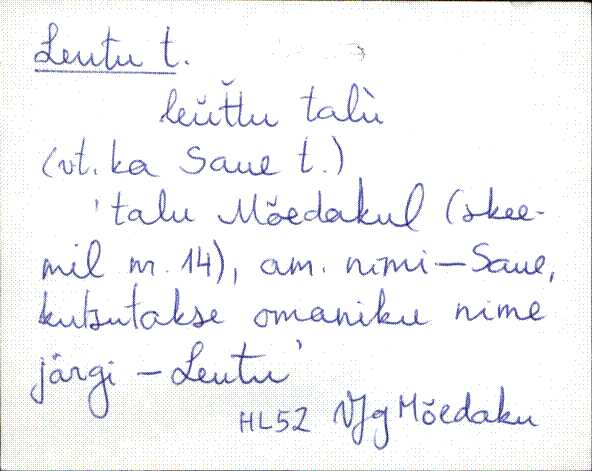 Leutu t.
leŭt̆tu talù
(vt. ka Saue t.)
'talu Mõedakul (skee-
mil nr. 14), am. nimi—Saue,
kutsutakse omaniku nime
järgi – Leutu'
HL52 VJg Mõedaku